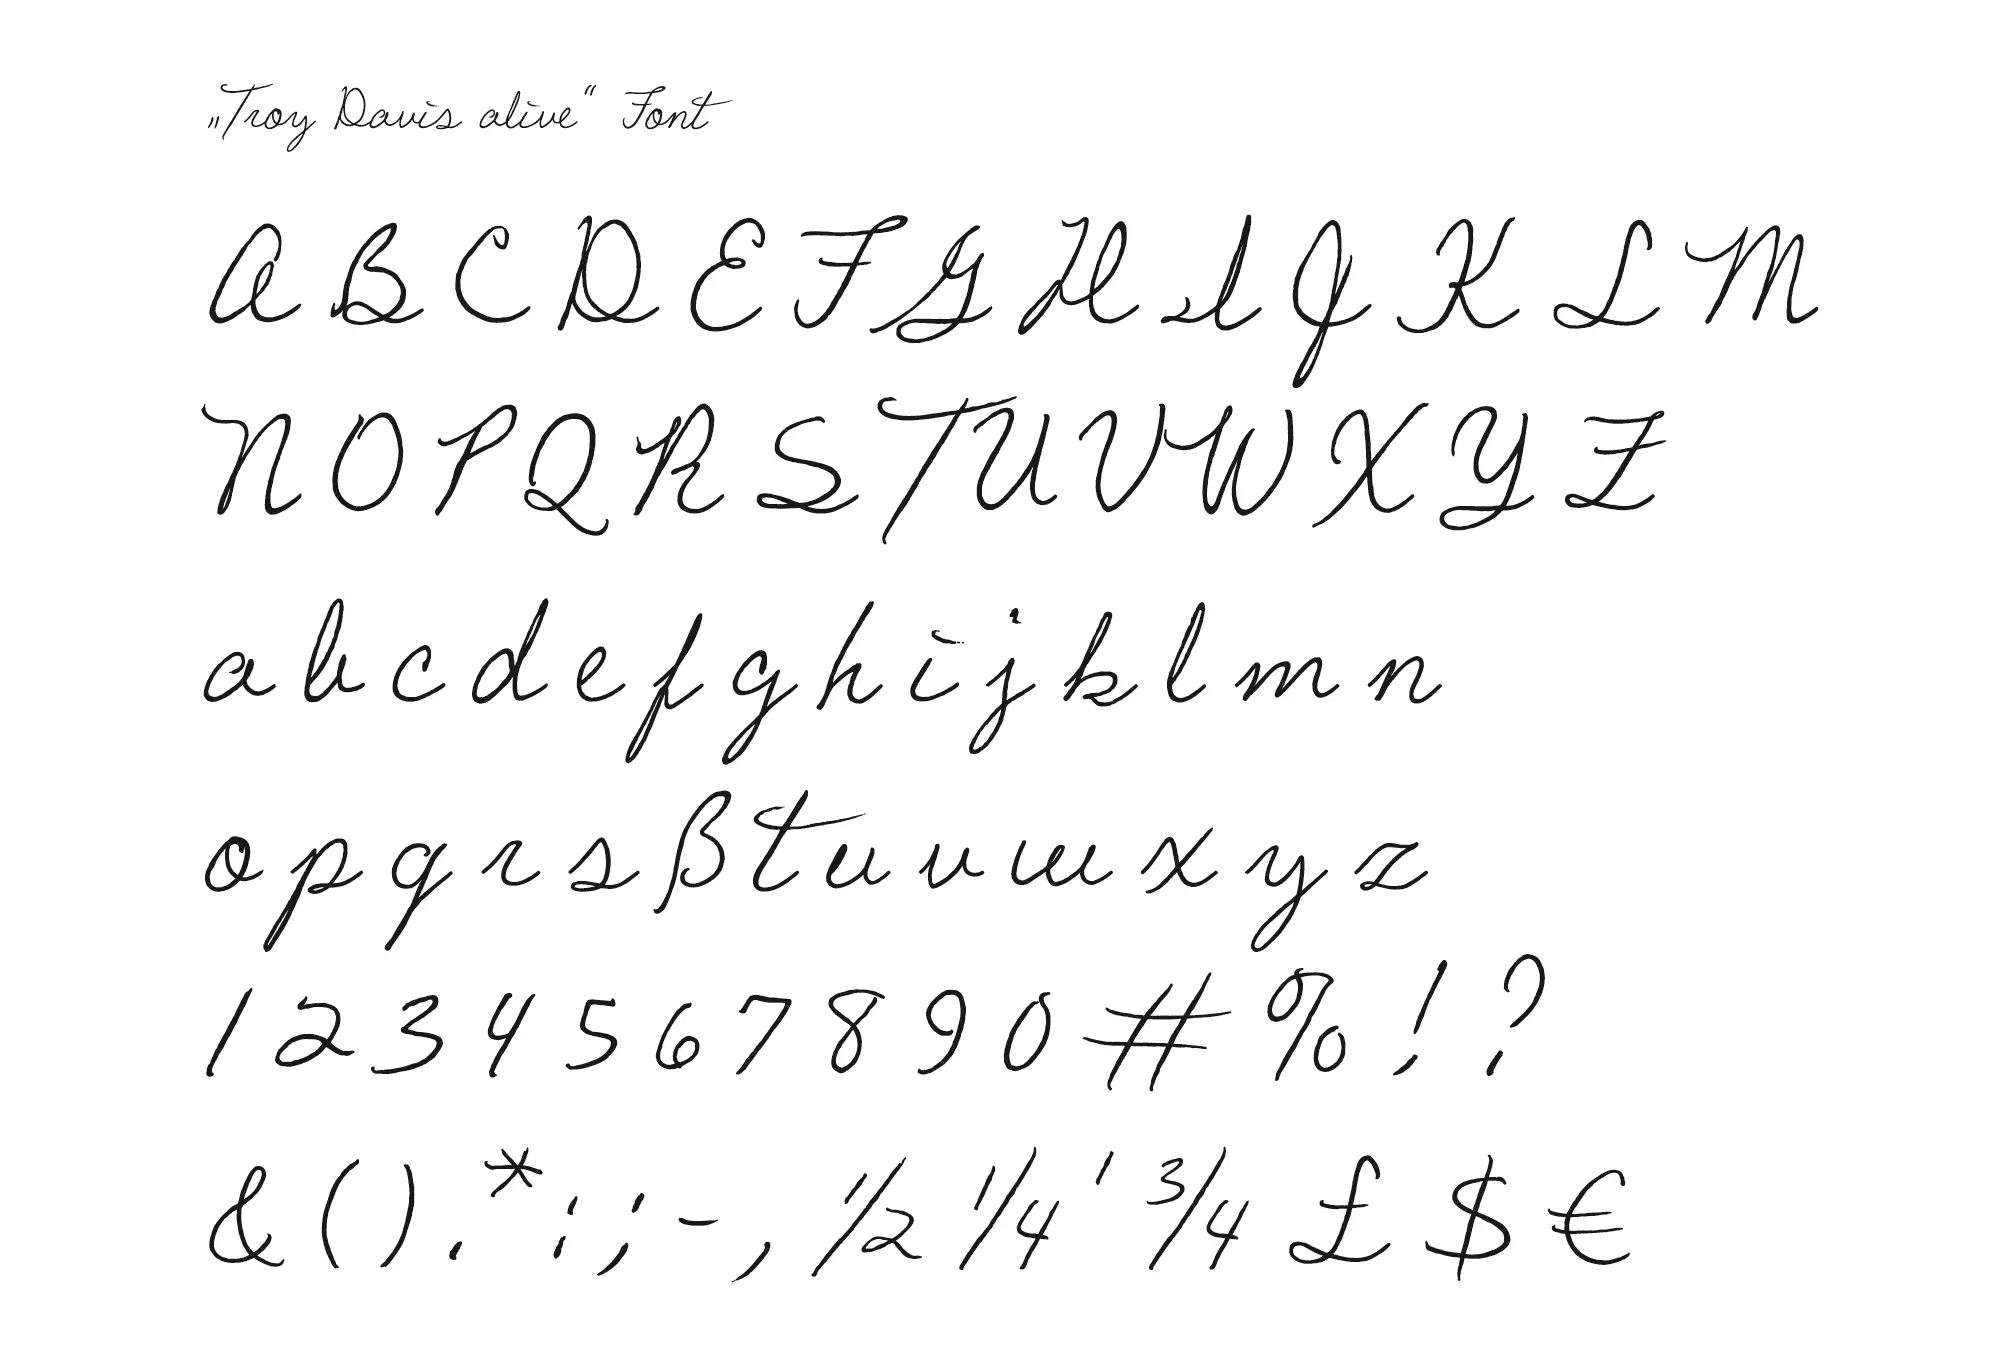 „Troy Davis alive“ Font
A B C D E F G H I J K L M
N O P Q R S T U V W X Y Z
a b c d e f g h i j k l m n
o p q r s ß t u v w x y z
1 2 3 4 5 6 7 8 9 0 # % ! ?
& ( ) . * : ; - , ½ ¼ ' ¾ £ $ €